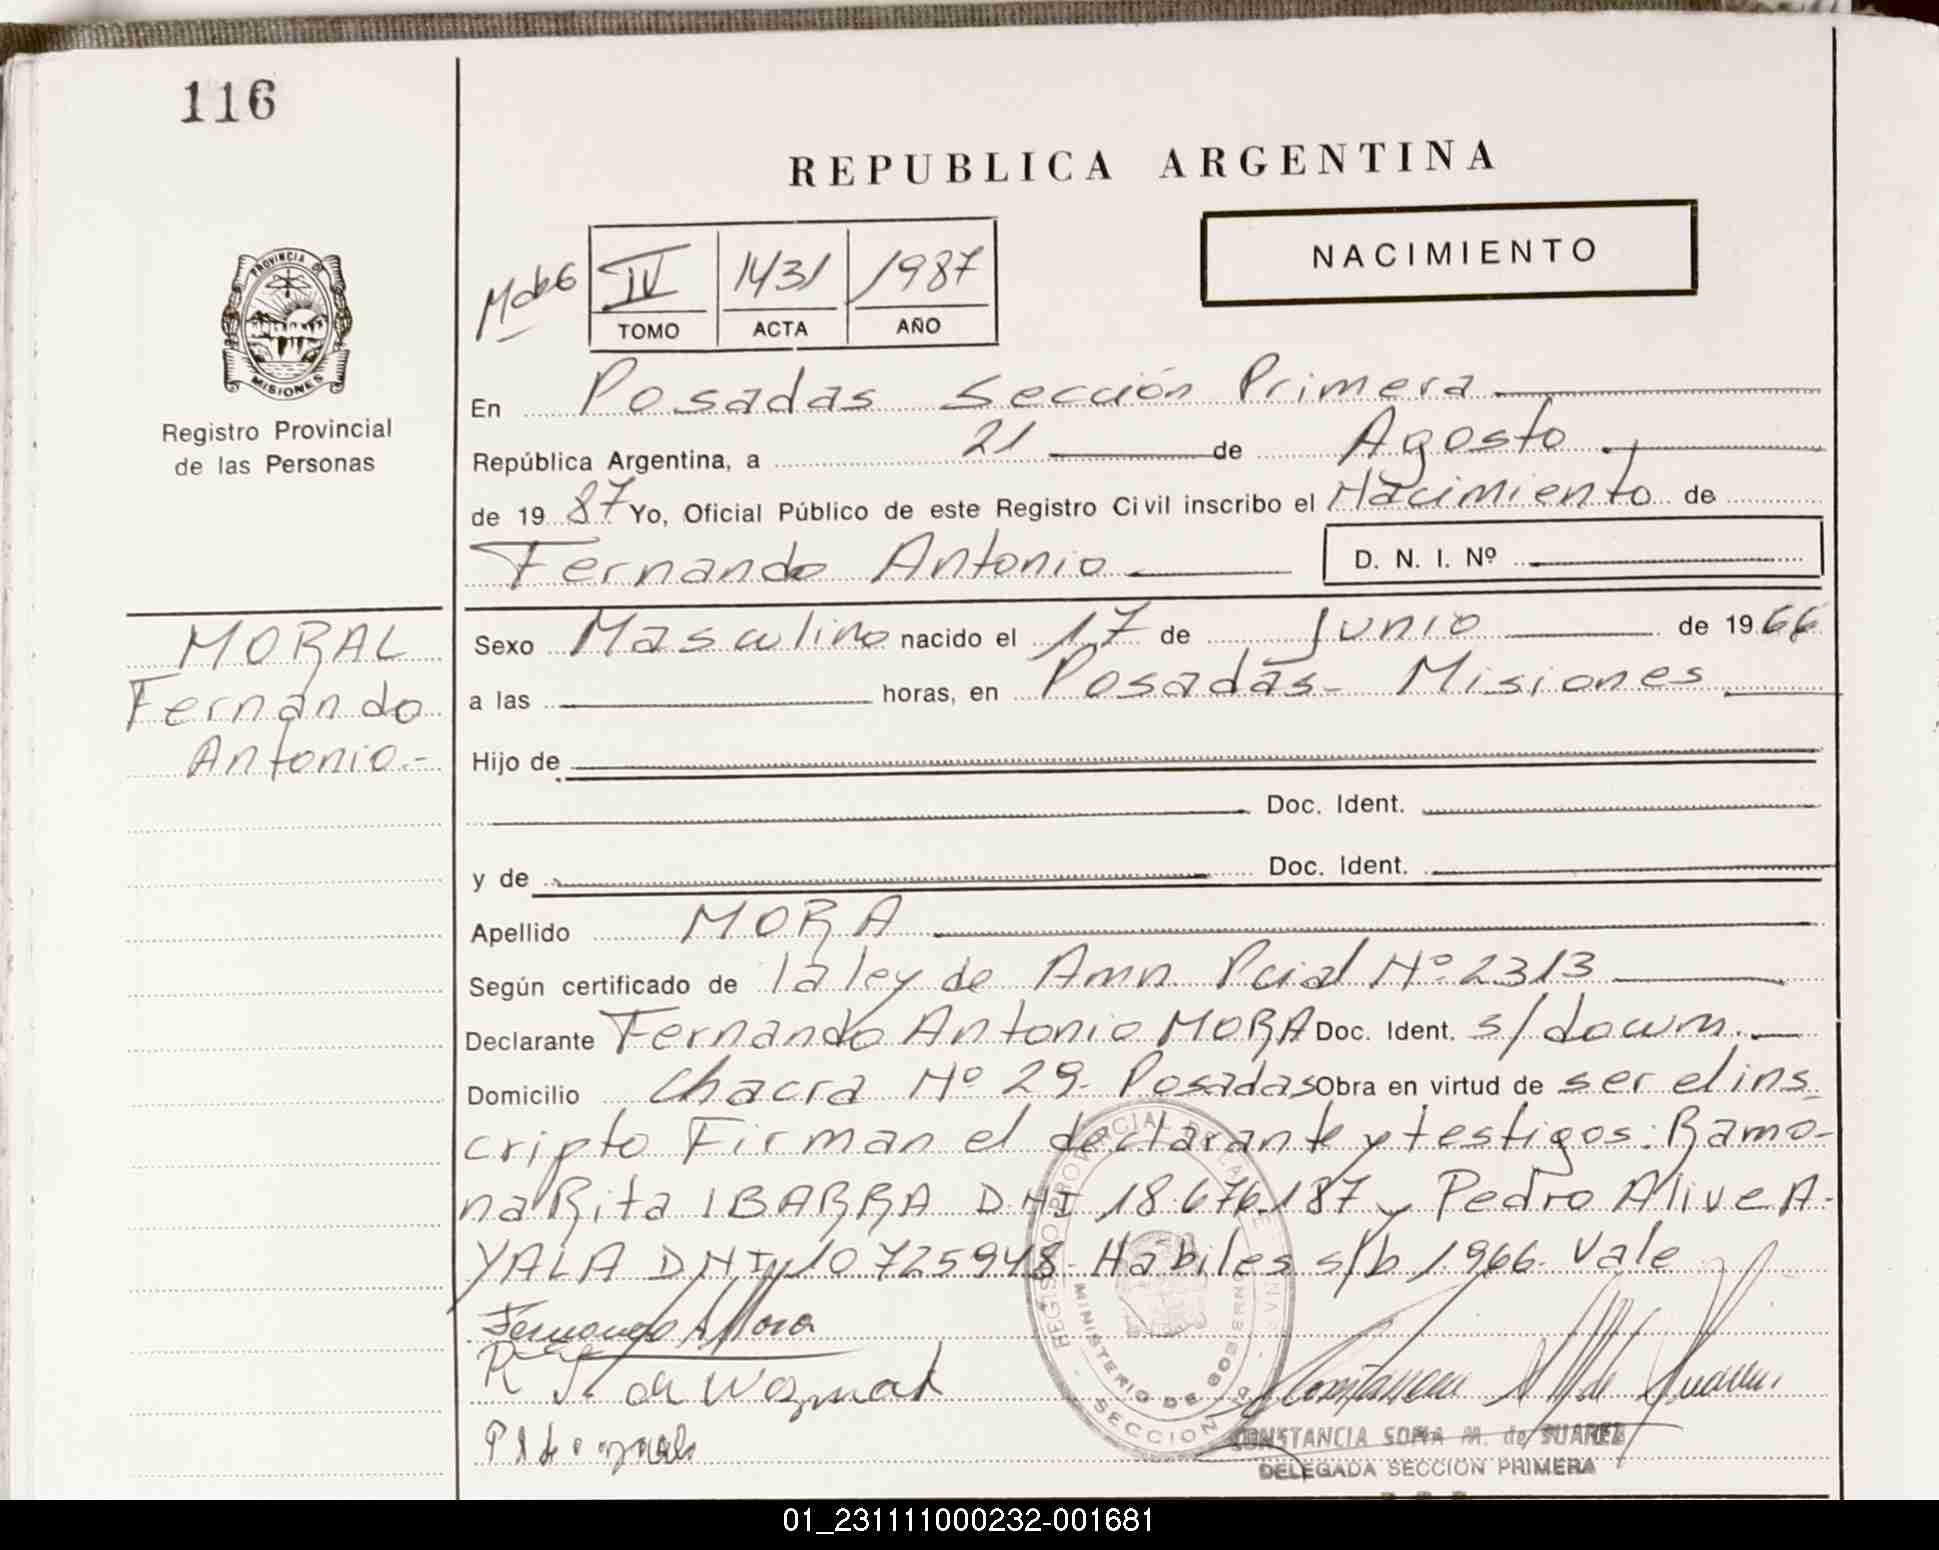 116
REPUBLICA ARGENTINA
NACIMIENTO
IV 1431 1987
TOMO ACTA AÑO
PROVINCIA DE
MISIONES
Registro Provincial
de las Personas
En Posadas Sección Primera
República Argentina, a 21 de Agosto
de 19 87 Yo, Oficial Público de este Registro Civil inscribo el Nacimiento de
Fernando Antonio D. N. I. Nº
MORAL
Fernando
Antonio.-
Sexo Masculino nacido el 17 de Junio de 1966
a las horas, en Posadas- Misiones
Hijo de
Doc. Ident.
y de Doc. Ident.
Apellido MORA
Según certificado de la ley de Amn Pcial Nº 2313
Declarante Fernando Antonio MORA Doc. Ident. s/docum.
Domicilio Chacra Nº 29- Posadas Obra en virtud de ser el ins
cripto Firman el declarante y testigos: Ramo-
na Rita IBARRA DNI 18.676.187 y Pedro Alive A-
YALA DNI 10 725948- Habiles s/b 1966- Vale
Fernando A Mora
REGISTRO PROVINCIAL DE LAS PERSONAS
MINISTERIO DE GOBIERNO
SECCION
CONSTANCIA SOFIA M. de SUAREZ
DELEGADA SECCION PRIMERA
01_231111000232-001681